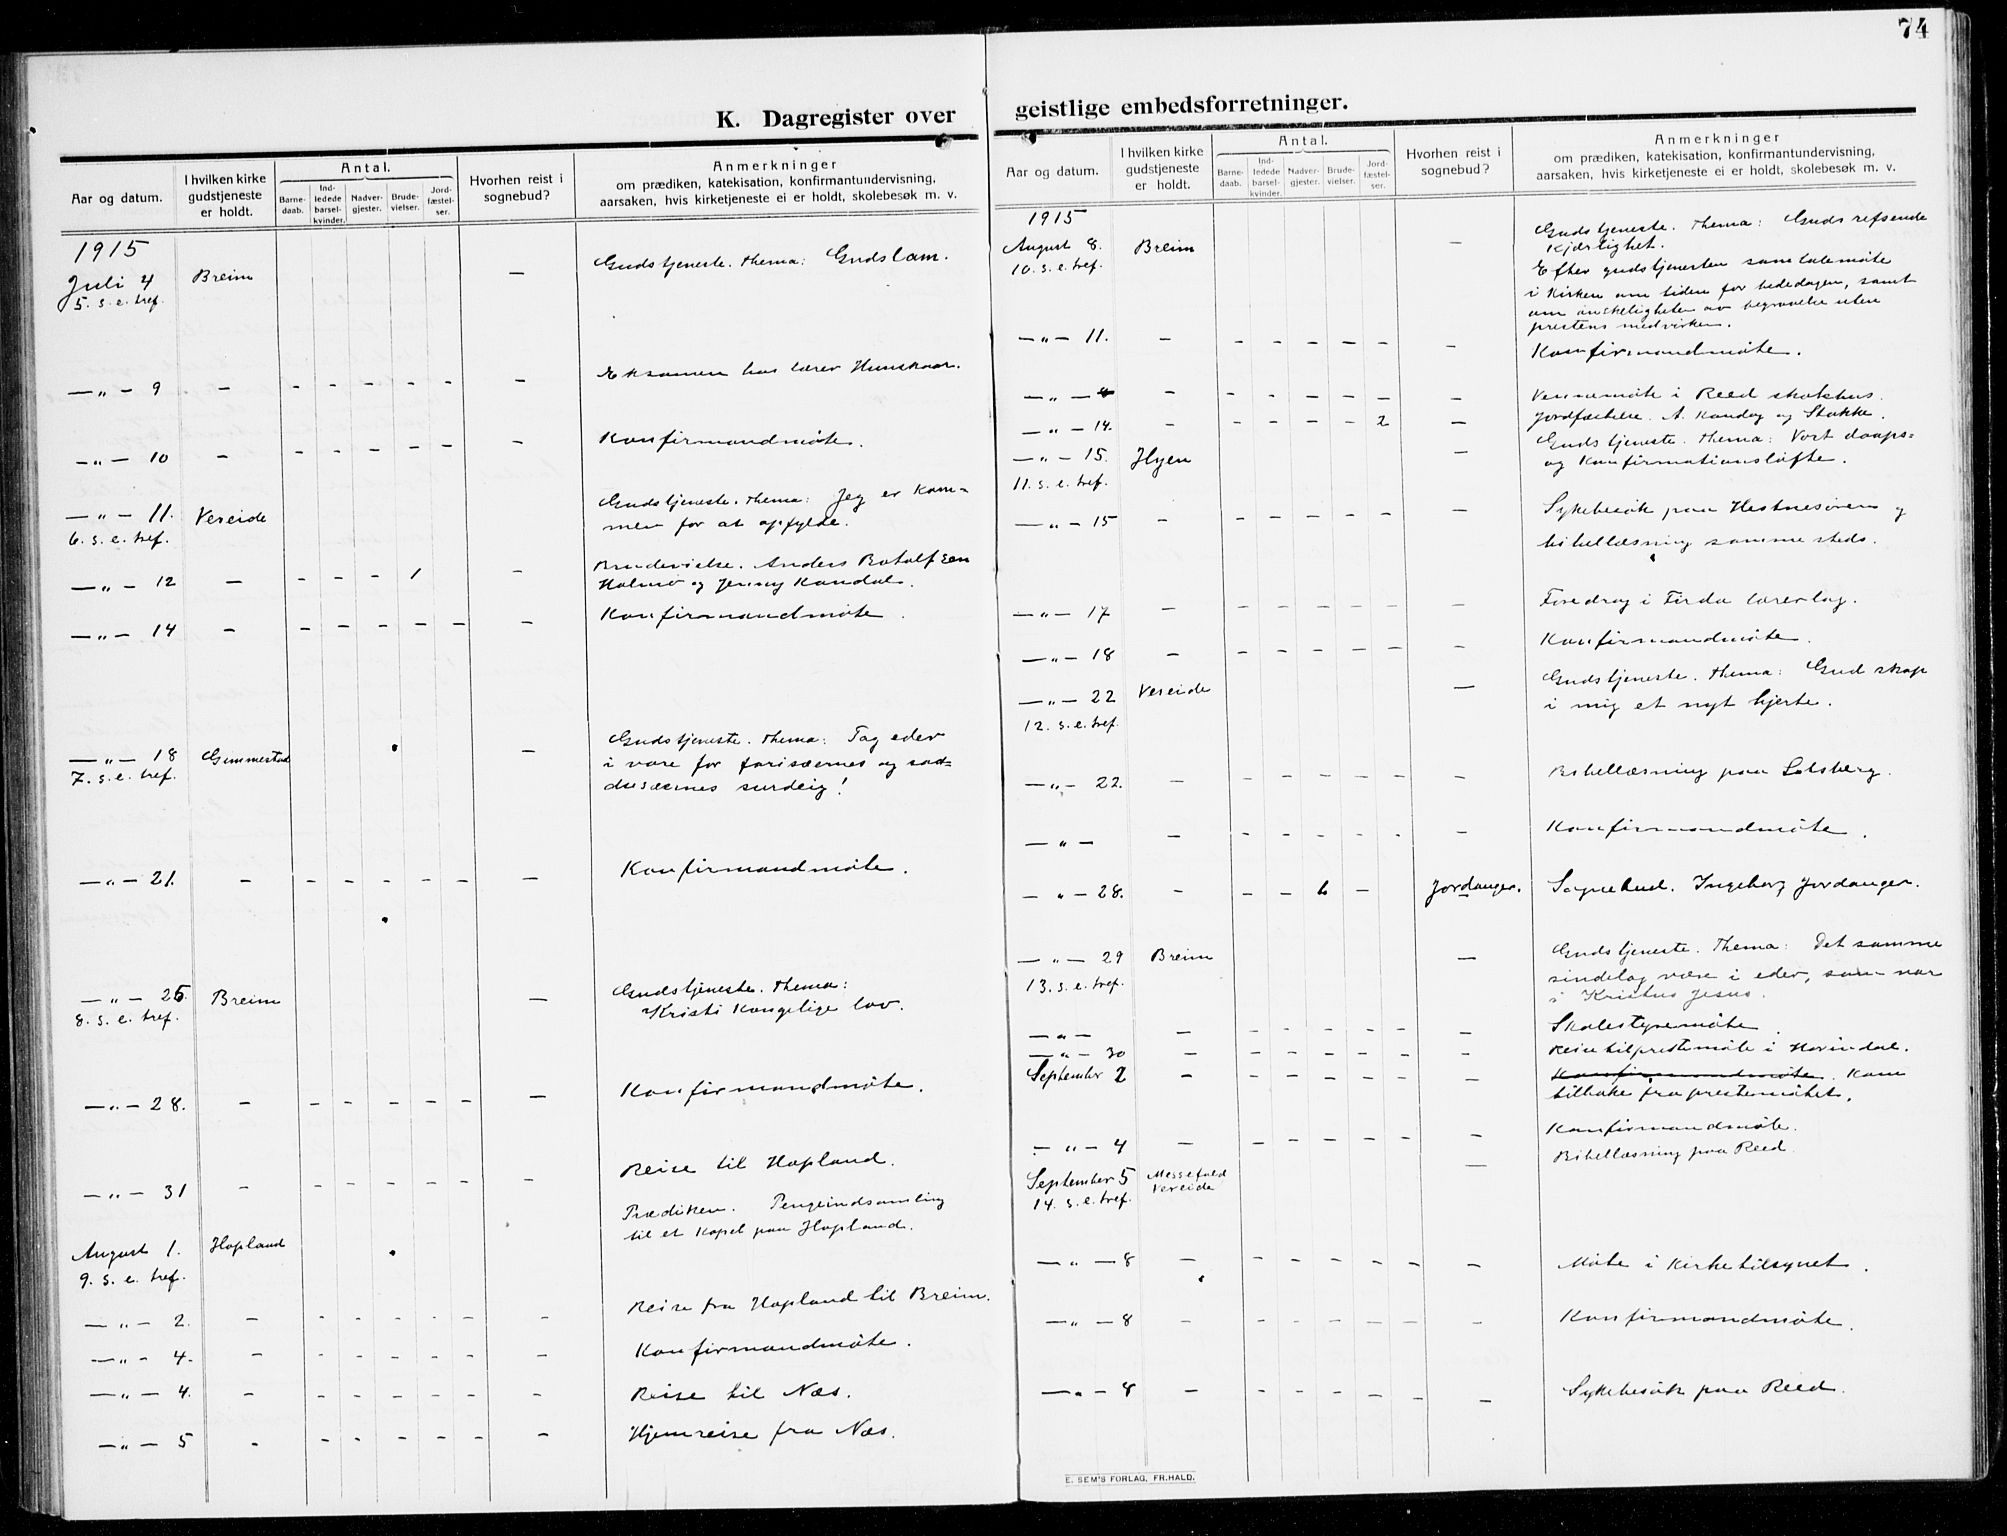 74
K. Dagregister over
geistlige embedsforretninger.
Aar og datum.
I hvilken kirke gudstjeneste er holdt.
Antal.
Barne-daab.
Ind-ledede barsel-kvinder.
Nadver-gjester.
Brude-vielser.
Jord-fæstel-ser.
Hvorhen reist i sognebud?
Anmerkninger
om prædiken, katekisation, konfirmantundervisning,
aarsaken, hvis kirketjeneste ei er holdt, skolebesøk m. v.
1915
Juli 4 Breim — Gudstjeneste. Thema: Guds lam.
5. s. e. tref.
— " — 9 — - - - - - — Eksamen hos lærer Hunskaar.
— " — 10 — - - - - - — Konfirmandmøte.
— " — 11. Vereide Gudstjeneste. Thema: Jeg er kom=
6. s. e. tref. men for at opfylde.
— " — 12 — - - - 1 — Brudevielse. Anders Botolfsen
Holmø og Jenny Kandal.
— " — 14 — - - - - - — Konfirmandmøte.
— " — 18 Gimmestad — Gudstjeneste. Thema: Tag eder
7. s. e. tref. i vare for farisæernes og sad=
dusæernes surdeig!
— " — 21. — - - - - - — Konfirmandmøte.
— " — 25. Breim — Gudstjeneste. Thema:
8. s. e. tref. Kristi kongelige lov.
— " — 28. — - - - - - — Konfirmandmøte.
— " — 31 — - - - - - — Reise til Hopland.
Prædiken. Pengeindsamling
til et kapel paa Hopland.
August 1. Hopland
9. s. e. tref.
— " — 2. — - - - - - — Reise fra Hopland til Breim.
— " — 4. — - - - - - — Konfirmandmøte.
— " — 4. — - - - - - — Reise til Næs.
— " — 5 - - - - - - — Hjemreise fra Næs.
Aar og datum.
I hvilken kirke gudstjeneste er holdt.
Antal.
Barne-daab.
Ind-ledede barsel-kvinder.
Nadver-gjester.
Brude-vielser.
Jord-fæstel-ser.
Hvorhen reist i sognebud?
Anmerkninger
om prædiken, katekisation, konfirmantundervisning,
aarsaken, hvis kirketjeneste ei er holdt, skolebesøk m. v.
1915
August 8. Breim — Gudstjeneste. Thema: Guds refsende
10. s. e. tref. Kjærlighet.
Efter gudstjenesten samtalemøte
i kirken om tiden for bededagen, samt
om ønskeligheten av begravelse uten
prestens medvirken.
— " — 11. — - - - - - — Konfirmandmøte.
— " — — - - - - - — Vennemøte i Reed skolehus.
— " — 14. — - - - - 2 — Jordfæstelse. A. Kandal og Stokke.
— " — 15. Hyen — Gudstjeneste. Thema: Vort daaps=
11. s. e. tref. og konfirmationsløfte.
— " — 15 — - - - - - — Sykebesøk paa Hestnesøren og
bibellæsning sammesteds.
— " — 17 — - - - - - — Foredrag i Firda lærerlag.
— " — 18 — - - - - - — Konfirmandmøte.
— " — 22 Vereide — Gudstjeneste. Thema: Gud skap
12. s. e. tref. i mig et nyt hjerte.
— " — 22. — - - - - - — Bibellæsning paa Solsberg.
— " — — - - - - - — Konfirmandmøte.
— " — 28. — - - 6 - Jordanger. Sognebud. Ingeborg Jordanger.
— " — 29 Breim — Gudstjeneste. Thema: Det samme
13. s. e. tref. sindelag være i eder, som var
i Kristus Jesus.
— " — — - - - - - — Skolestyremøte.
— " — 30 — - - - - - — Reise til prestemøte i Hornindal.
September 2 — - - - - - — Konfirmandmøte. Kom
tilbake fra prestemøtet.
— " — 4 — - - - - - — Konfirmandmøte.
September 5 Messefald — Bibellæsning paa Reed.
14. s. e. tref. Vereide
— " — 8 — - - - - - — Møte i kirketilsynet.
— " — 8 — - - - - - — Konfirmandmøte.
— " — 8 — - - - - - — Sykebesøk paa Reed.
E. SEM'S FORLAG, FR.HALD.